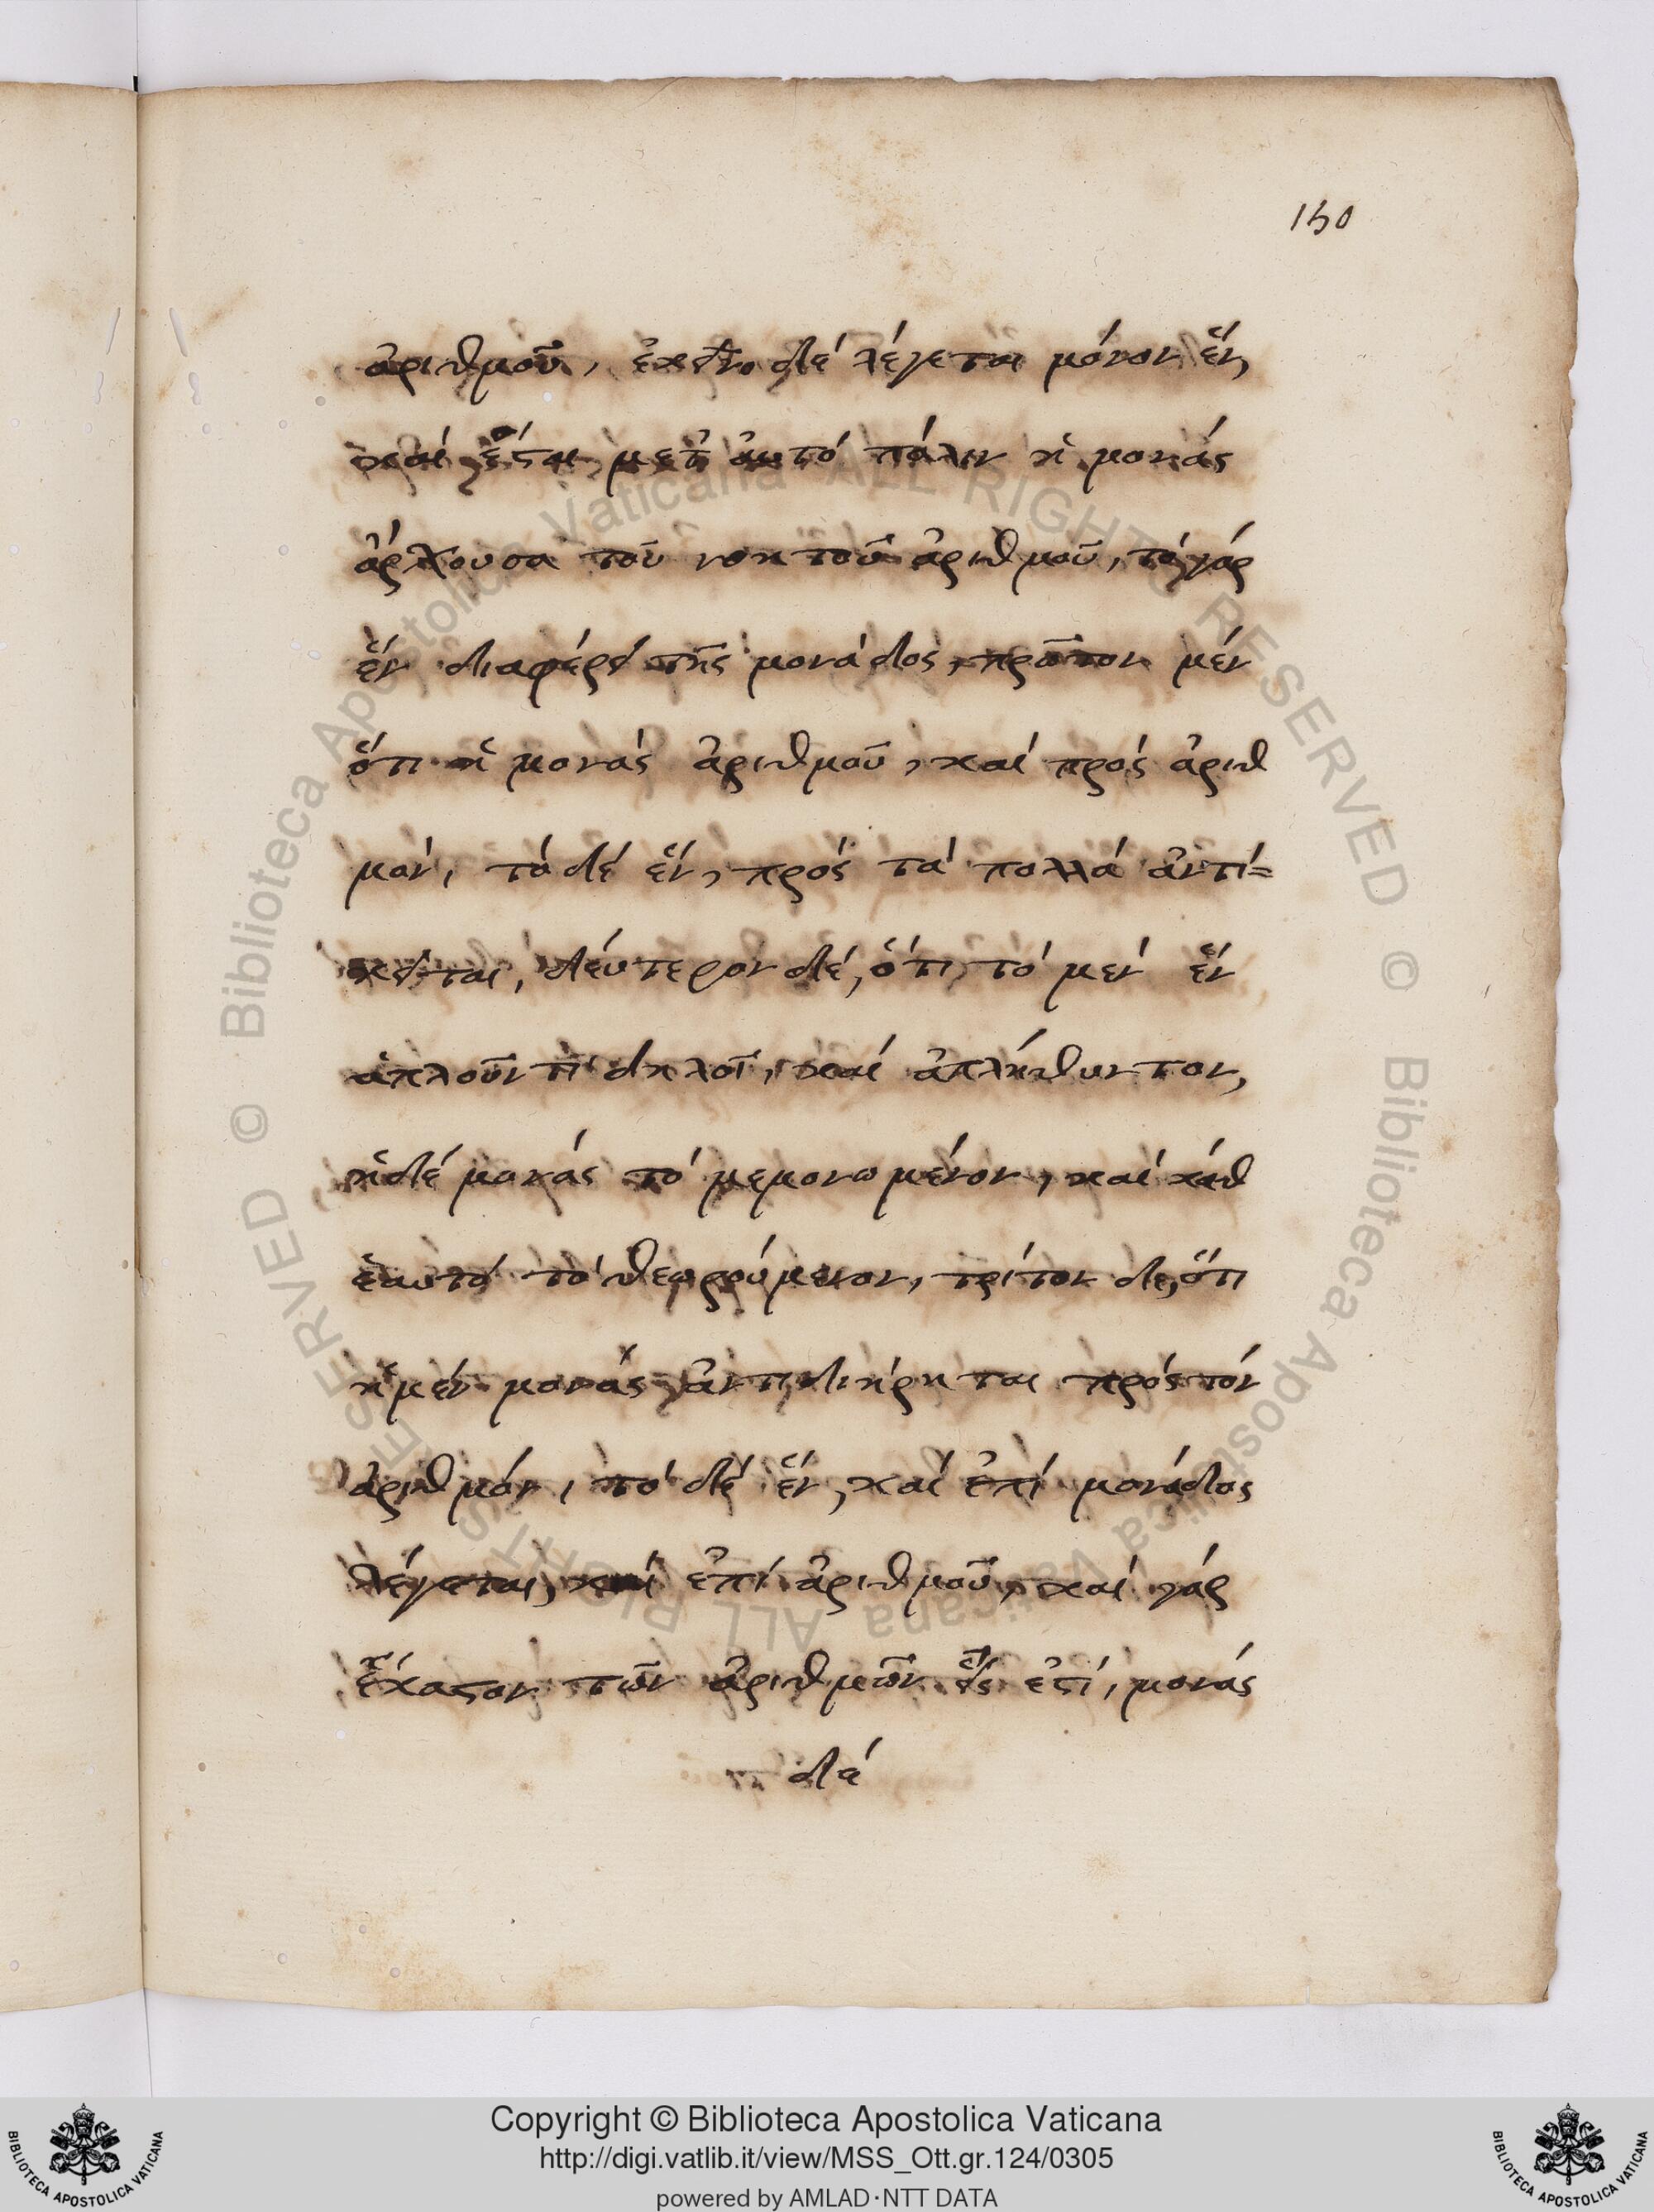 150
ἀριθμοῦ, ἐκεῖνο δέ λέγεται μόνον ἕν,
καί ἔσται μετ' αὐτό πάλιν ἡ μονάς
ἄρχουσα τοῦ νοητοῦ ἀριθμοῦ, τό γάρ
ἕν διαφέρει τῆς μονάδος, πρῶτον μέν
ὅτι ἡ μονάς ἀριθμοῦ, καί πρός ἀριθ
μόν, τό δέ ἕν, πρός τά πολλά ἀντί=
κειται, δεύτερον δέ, ὅτι τό μέν ἕν
ἁπλοῦν τί δηλοῖ, καί ἀπλήθυντον,
ἡ δέ μονάς τό μεμονωμένον, καί κάθ
ἑαυτό τό θεωρούμενον, τρίτον δε, ὅτι
ἡ μέν μονάς ἀντιδιήρηται πρός τόν
ἀριθμόν, τό δέ ἕν, καί ἐπί μονάδος
λέγεται, καί ἐπί ἀριθμοῦ, καί γάρ
ἕκαστον τῶν ἀριθμῶν εἷς ἐστί, μονάς
δέ
Copyright © Biblioteca Apostolica Vaticana
http://digi.vatlib.it/view/MSS_Ott.gr.124/0305
powered by AMLAD·NTT DATA
© Biblioteca Apostolica Vaticana ALL RIGHTS RESERVED © Biblioteca Apostolica Vaticana ALL RIGHTS RESERVED
BIBLIOTECA APOSTOLICA VATICANA
BIBLIOTECA APOSTOLICA VATICANA